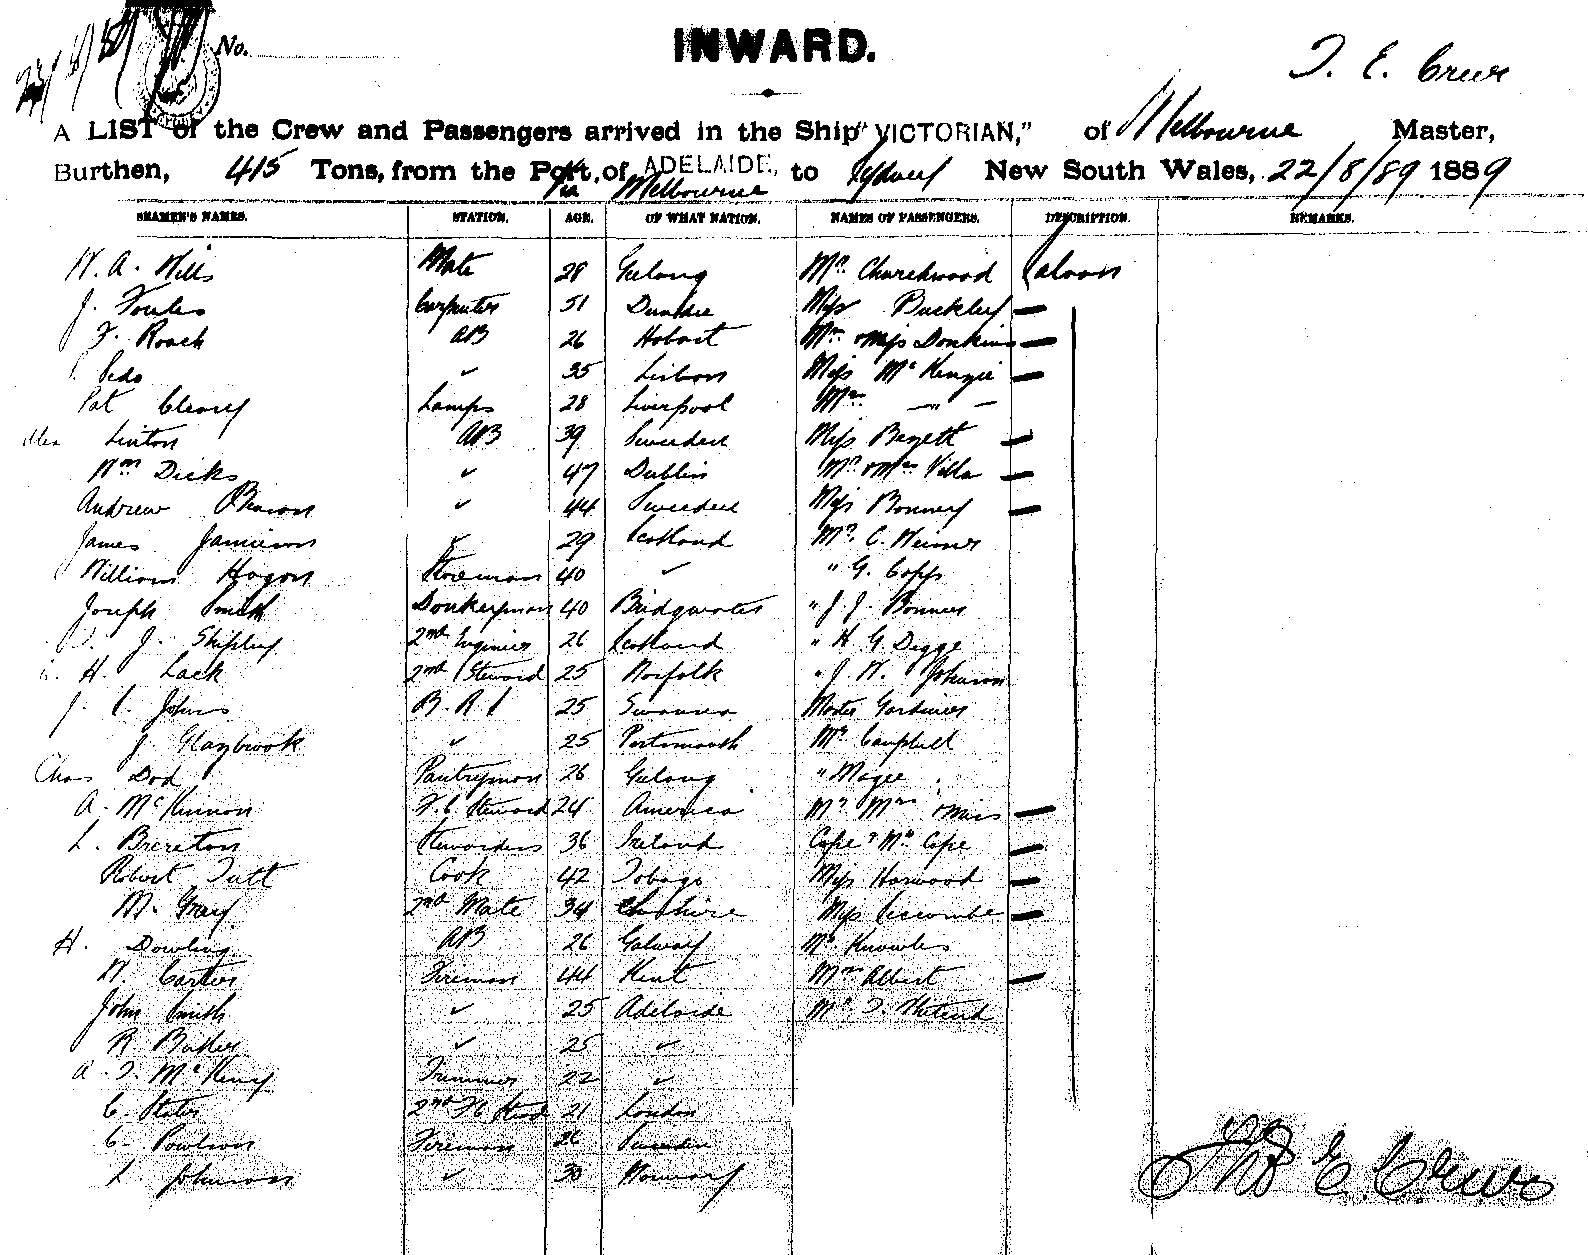 No.
INWARD.
T. E. Creer
A LIST of the Crew and Passengers arrived in the Ship "VICTORIAN," of Melbourne Master,
Burthen, 415 Tons, from the Port of ADELAIDE, to Sydney New South Wales, 22/8/89 1889
via Melbourne
SEAMEN'S NAMES. STATION. AGE. OF WHAT NATION. NAMES OF PASSENGERS. DESCRIPTION. REMARKS.
W. A. Mills Mate 28 Geelong Mr. Churchwood Saloon
J. Carpenter 51 Dundee Miss Buckley —
F. Roach AB 26 Hobart Mrs & Miss Donkins —
Pedo ✓ 35 Lisbon Miss McKenzie —
Pat Cleary Lamps 28 Liverpool Mrs — " —
Alex Linton AB 39 Sweeden Miss —
Wm Dicks ✓ 47 Dublin Mr & Mrs Villa —
Andrew ✓ 44 Sweeden Miss Bonney —
James Jamieson ✓ 29 Scotland Mr. C. Weimer
William Hogan Storeman 40 ✓ " G. Copp
Joseph Smith Donkeyman 40 Bridgwater " J. J.
J. Shipley 2nd Engineer 26 Scotland " H. G. Digge
H. Lack 2nd Steward 25 Norfolk " J. W. Johnson
J. Johns B. R. S 25 Swansea Master Gardiner
J. Glazbrook ✓ 25 Portsmouth Mr Campbell
Chas Dod Pantryman 26 Geelong " Magee
A. McKinnon F. C. Steward 24 America Mr. Mrs & Miss —
L. Brereton Stewardess 36 Ireland Cape & Mr Cape —
Robert Tutt Cook 42 Tobago Miss Harwood —
M. Gray 2nd Mate 34 Cheshire Miss Liscombe —
H. Dowling AB 26 Galway Mr Knowles
W. Carter Fireman 44 Kent Mrs Albert —
John Smith ✓ 25 Adelaide Mr T.
R. Baker ✓ 25 ✓
A. T. McKenry Trimmer 22 ✓
C. Slater 2nd F C Stewd 21 London
C. Poulson Fireman 26 Sweeden
L. Johnson ✓ 30 Norway
Thos E. Creer